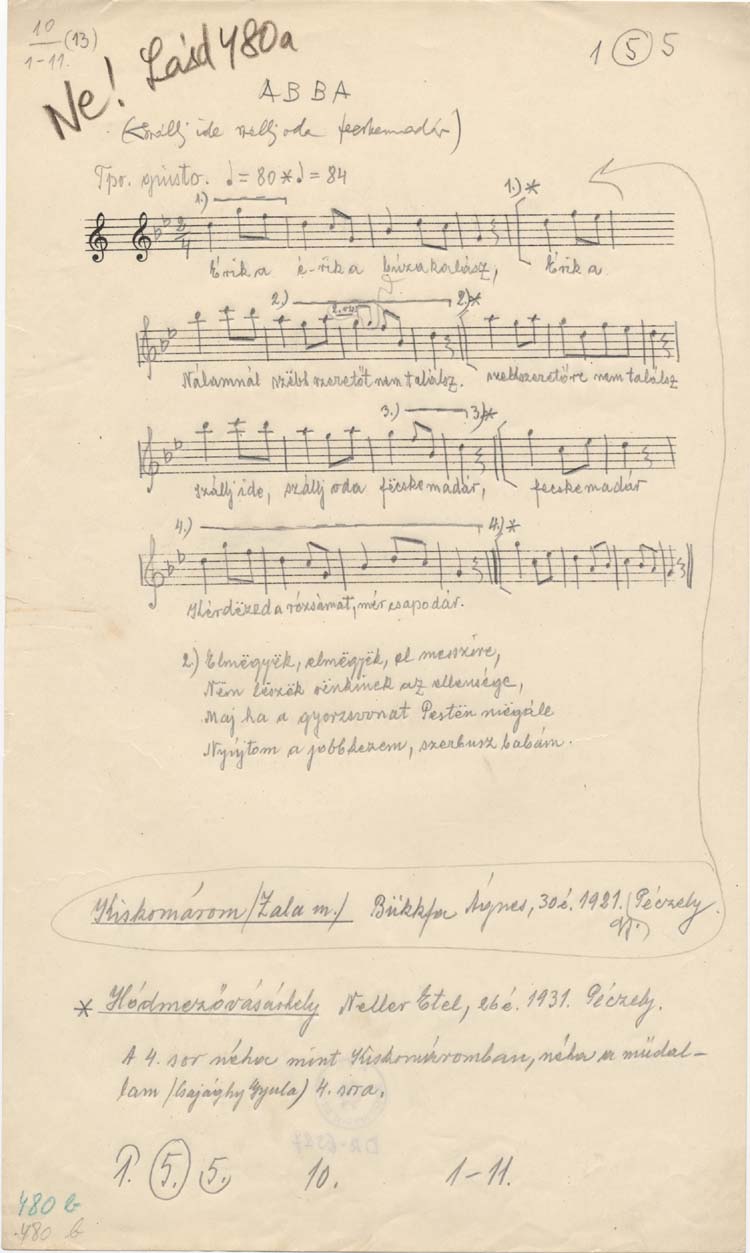 10 (13)
1-11.
Ne! Lásd 480a
1 5 5
ABBA
(Szállj ide szállj oda fecskemadár)
Tpo. giusto. ♩= 80 * ♩= 84
1.) 1.)*
2/4
Érik a é-rik a búzakalász, Érik a
2.) 2. vsz. 2.)*
Nálamnál szebb szeretőt nem találsz. szebb szeretőre nem találsz
3.) 3.)*
Szállj ide, szállj oda fëcskemadár, fecskemadár
4.) 4.)*
Kérdëzed a rózsámat, mér csapodár.
2.) Elmëgyëk, elmëgyëk, el messzire,
Nëm lëszëk sënkinek az ellensége,
Maj ha a gyorsvonat Pestën mëgále
Nyújtom a jobbkezem, szerbusz babám.
Kiskomárom /Zala m./ Bükkfa Ágnes, 30 é. 1921. (Péczely
gy.)
* Hódmezővásárhely Neller Etel, 26 é. 1931. Péczely.
A 4. sor néha mint Kiskomáromban, néha a műdal-
lam /Csajághy Gyula/ 4. sora.
1. 5. 5. 10. 1-11.
480 b
480 b